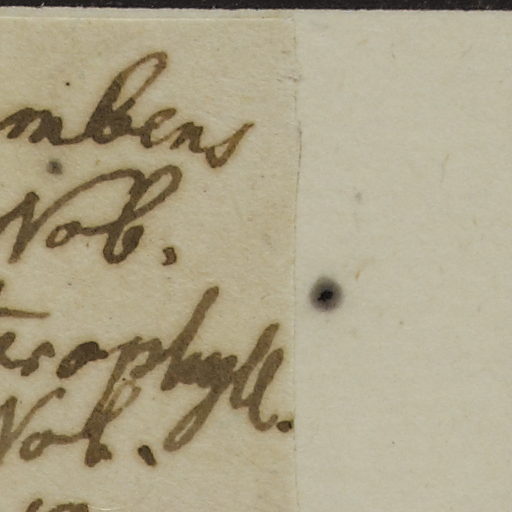 mbens
Nob.
terophyll.
Nob.